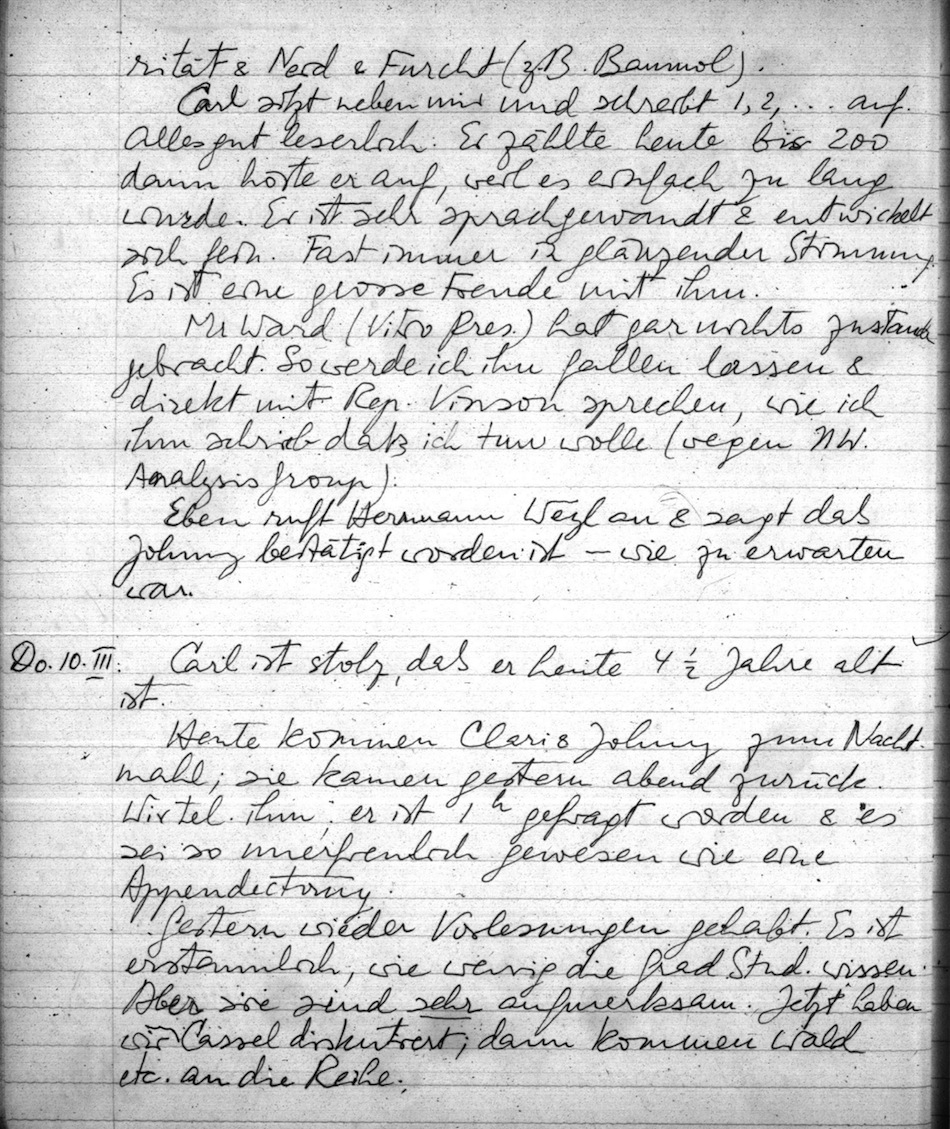 rität & Neid & Furcht (z.B. Baumol).
Carl sitzt neben mir und schreibt 1, 2, ... auf.
Alles gut leserlich. Er zählte heute bis 200
dann hörte er auf, weil es einfach zu lang
wurde. Er ist sehr sprachgewandt & entwickelt
sich fein. Fast immer in glänzender Stimmung.
Es ist eine grosse Freude mit ihm.
Mr Ward (Vitro Pres.) hat gar nichts zustande
gebracht. So werde ich ihn fallen lassen &
direkt mit Rep. Vinson sprechen, wie ich
ihm schrieb dass ich tun wolle (wegen NW.
Analysis Group).
Eben ruft Hermann Weyl an & sagt dass
Johnny bestätigt worden ist – wie zu erwarten
war.
Do. 10. III. Carl ist stolz, dass er heute 4 ½ Jahre alt
ist.
Heute kommen Clari & Johnny zum Nacht-
mahl; sie kamen gestern abend zurück.
Wir tel. ihm; er ist 1h gefragt worden & es
sei so unerfreulich gewesen wie eine
Appendectomy.
Gestern wieder Vorlesungen gehabt. Es ist
erstaunlich, wie wenig die Grad Stud. wissen.
Aber sie sind sehr aufmerksam. Jetzt haben
wir Cassel diskutiert; dann kommen Wald
etc. an die Reihe.